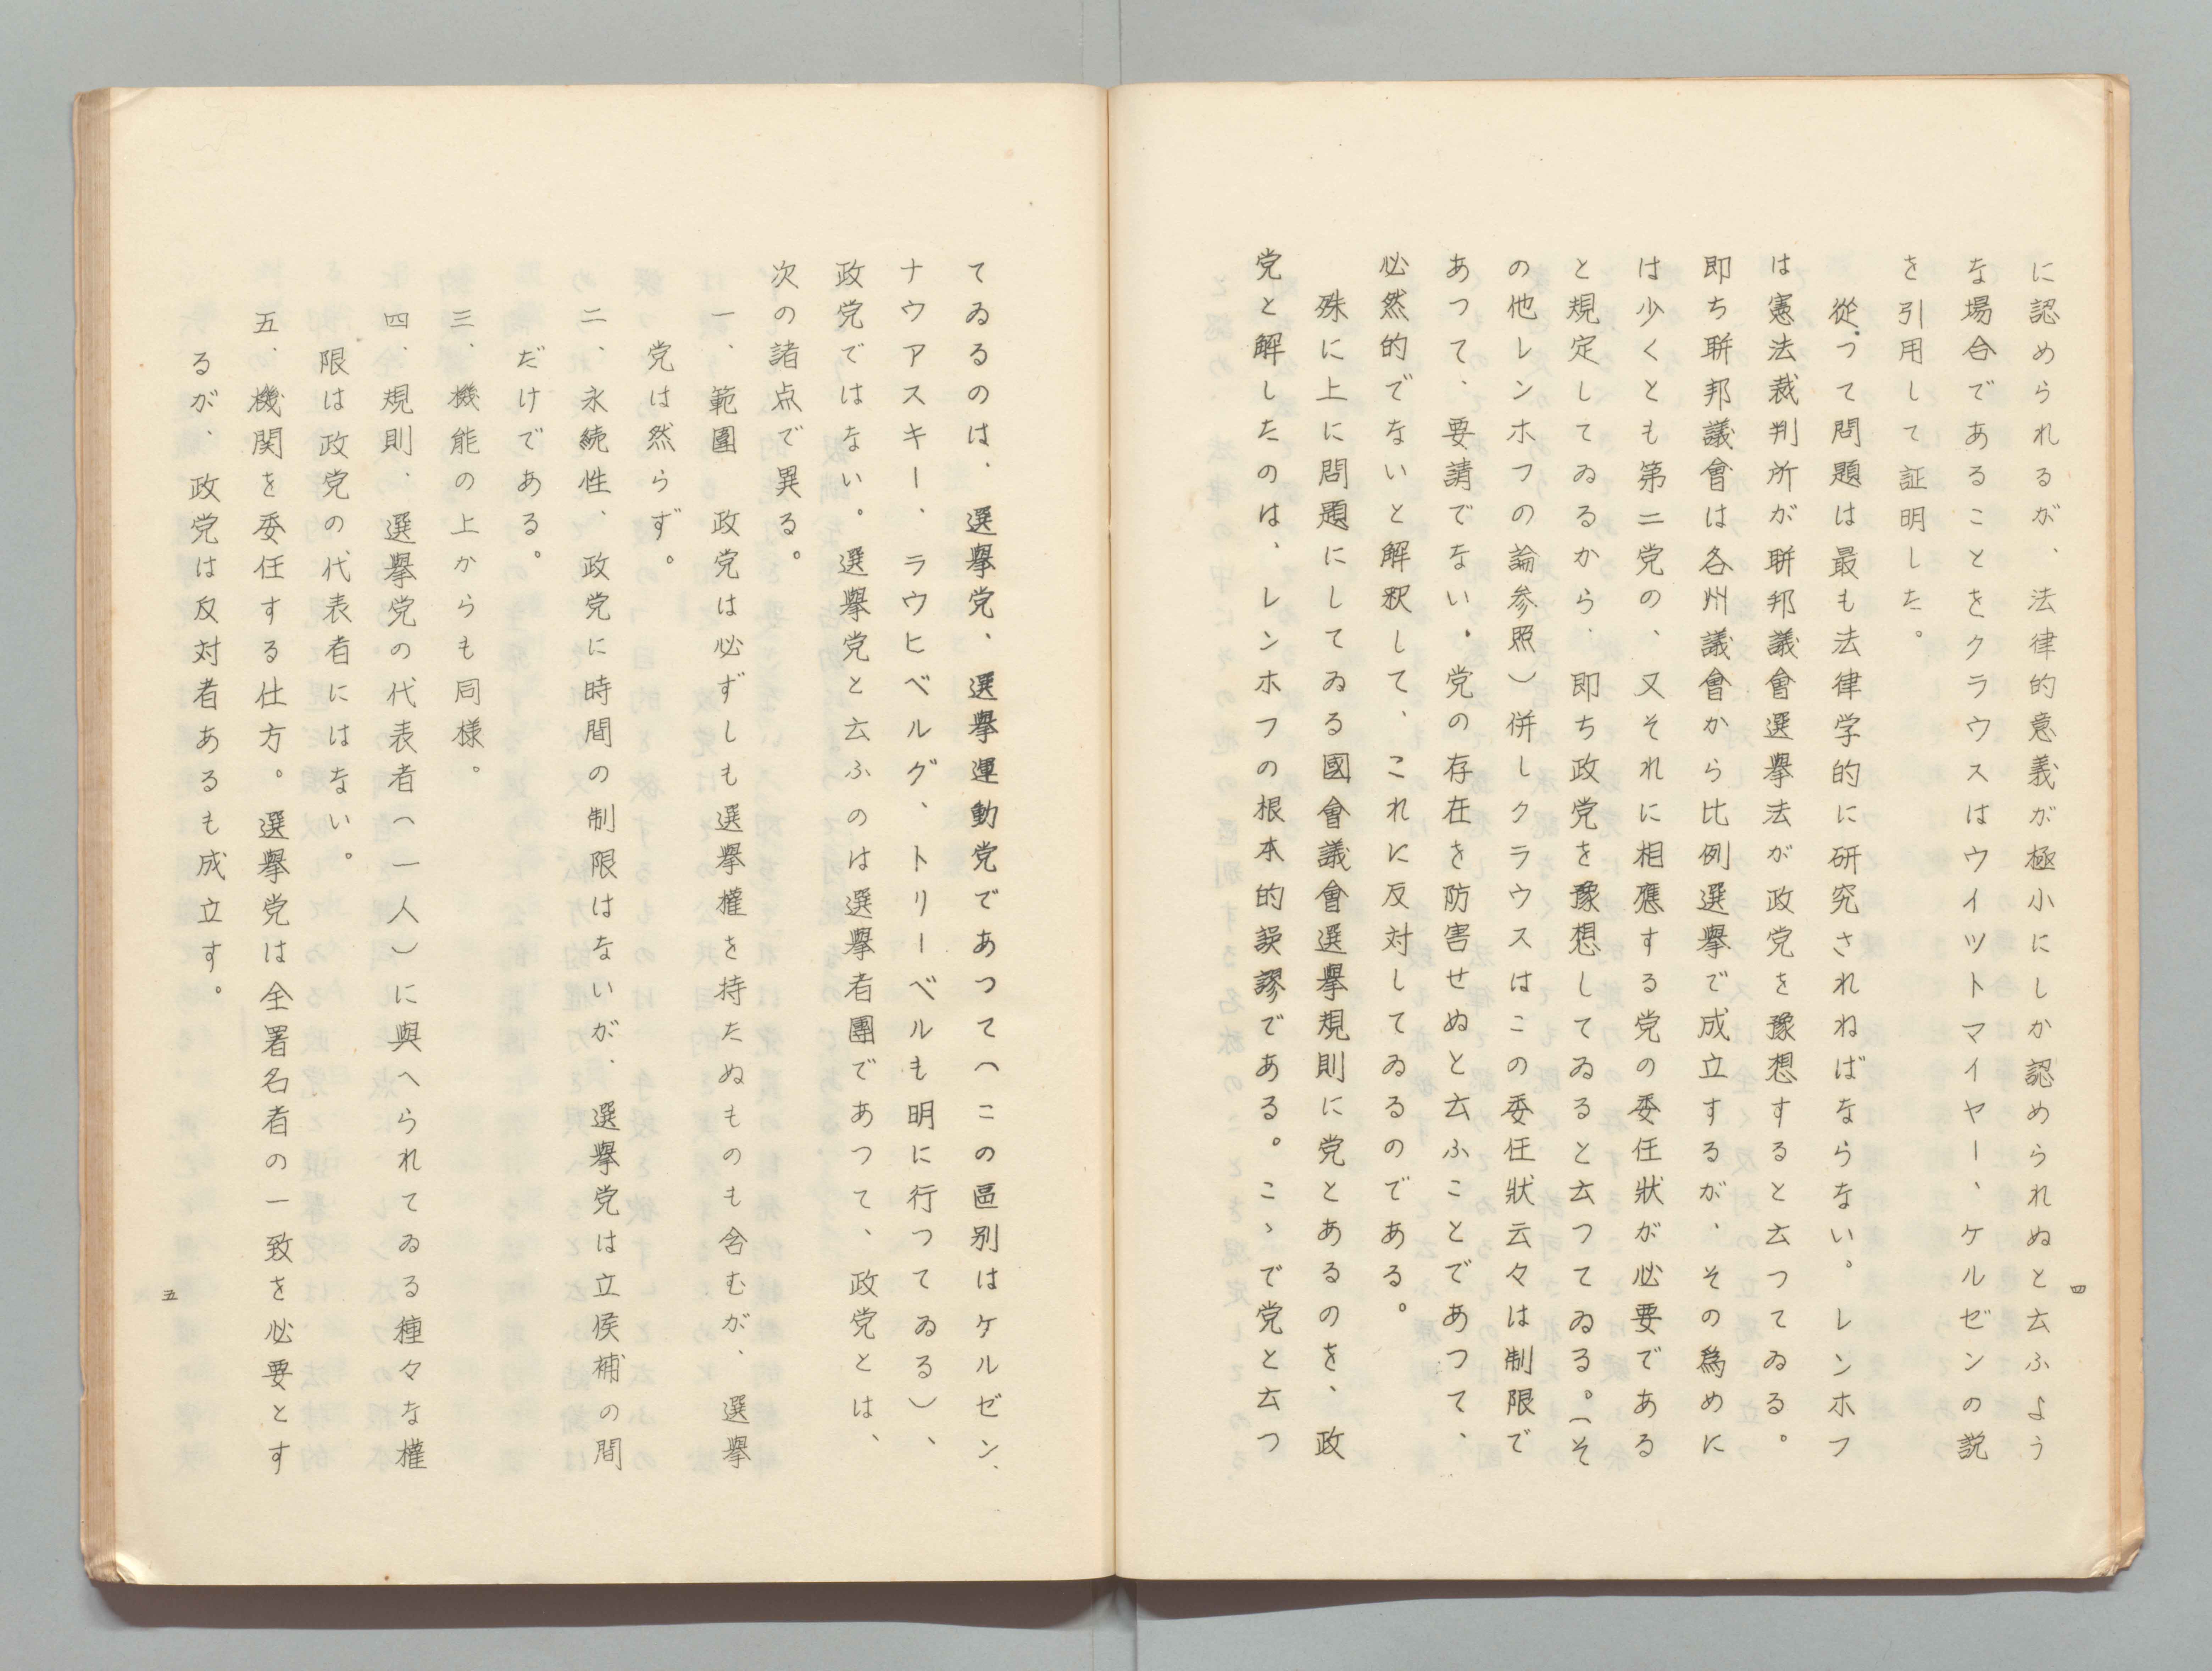 に認められるが、法律的意義が極小にしか認められぬと云ふよう
な場合であることをクラウスはウイツトマイヤー、ケルゼンの説
を引用して証明した。
従つて問題は最も法律学的に研究されねばならない。レンホフ
は憲法裁判所が聨邦議會選擧法が政党を豫想すると云つてゐる。
即ち聨邦議會は各州議會から比例選擧で成立するが、その為めに
は少くとも第二党の、又それに相應する党の委任狀が必要である
と規定してゐるから、即ち政党を豫想してゐると云つてゐる。(そ
の他レンホフの論参照)併しクラウスはこの委任狀云々は制限で
あつて、要請でない。党の存在を防害せぬと云ふことであつて、
必然的でないと解釈して、これに反対してゐるのである。
殊に上に問題にしてゐる國會議會選擧規則に党とあるのを、政
党と解したのは、レンホフの根本的誤謬である。こゝで党と云つ
四
てゐるのは、選擧党、選擧運動党であつて(この區别はケルゼン、
ナウアスキー、ラウヒベルグ、トリーペルも明に行つてゐる)、
政党ではない。選擧党と云ふのは選擧者團であつて、政党とは、
次の諸点で異る。
一、範圍 政党は必ずしも選擧權を持たぬものも含むが、選擧
党は然らず。
二、永続性、政党に時間の制限はないが、選擧党は立侯補の間
だけである。
三、機能の上からも同様。
四、規則、選擧党の代表者(一人)に與へられてゐる種々な權
限は政党の代表者にはない。
五、機関を委任する仕方。選擧党は全署名者の一致を必要とす
るが、政党は反対者あるも成立す。
五